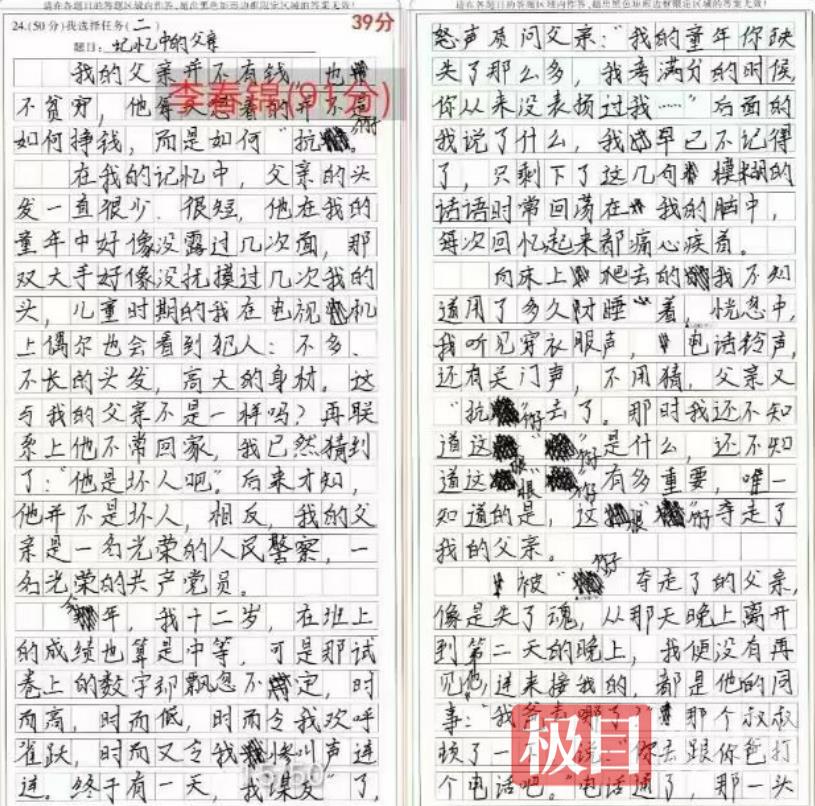 请在各题目的答题区域内作答,超出黑色矩形边框限定区域的答案无效!
39分
24.(50分)我选择任务(二)
题目:记忆中的父亲
我的父亲并不有钱,也
不贫穷,他每天想着的并不是
李春锦(91分)
如何挣钱,而是如何“抗
在我的记忆中,父亲的头
发一直很少、很短,他在我的
童年中好像没露过几次面,那
双大手好像没抚摸过几次我的
头,儿童时期的我在电视机
上偶尔也会看到犯人:不多、
不长的头发,高大的身材。这
与我的父亲不是一样吗?再联
系上他不常回家,我已然猜到
了:“他是坏人吧”。后来才知,
他并不是坏人,相反,我的父
亲是一名光荣的人民警察,一
名光荣的共产党员。
今年,我十二岁,在班上
的成绩也算是中等,可是那试
卷上的数字却飘忽不定,时
而高,时而低,时而令我欢呼
雀跃,时而又令我惨叫声连
连。终于有一天,我“爆发”了,
15:50
请在各题目的答题区域内作答,超出黑色矩形边框限定区域的答案无效!
怒声质问父亲:“我的童年你缺
失了那么多,我考满分的时候
你从来没表扬过我……”后面的
我说了什么,我早已不记得
了,只剩下了这几句模糊的
话语时常回荡在我的脑中,
每次回忆起来都痛心疾首。
向床上爬去的我不知
道用了多久才睡着,恍忽中,
我听见穿衣服声,电话铃声,
还有关门声,不用猜,父亲又
“抗 去了。那时我还不知
道这 是什么,还不知
道这 有多重要,唯一
知道的是,这 夺走了
我的父亲。
被“ 夺走了的父亲,
像是失了魂,从那天晚上离开
到第二天的晚上,我便没有再
见他,进来接我的,都是他的同
事:“我爸去哪了?”那个叔叔
顿了一 说:“你去跟你爸打
个电话吧。”电话通了,那一头
极目